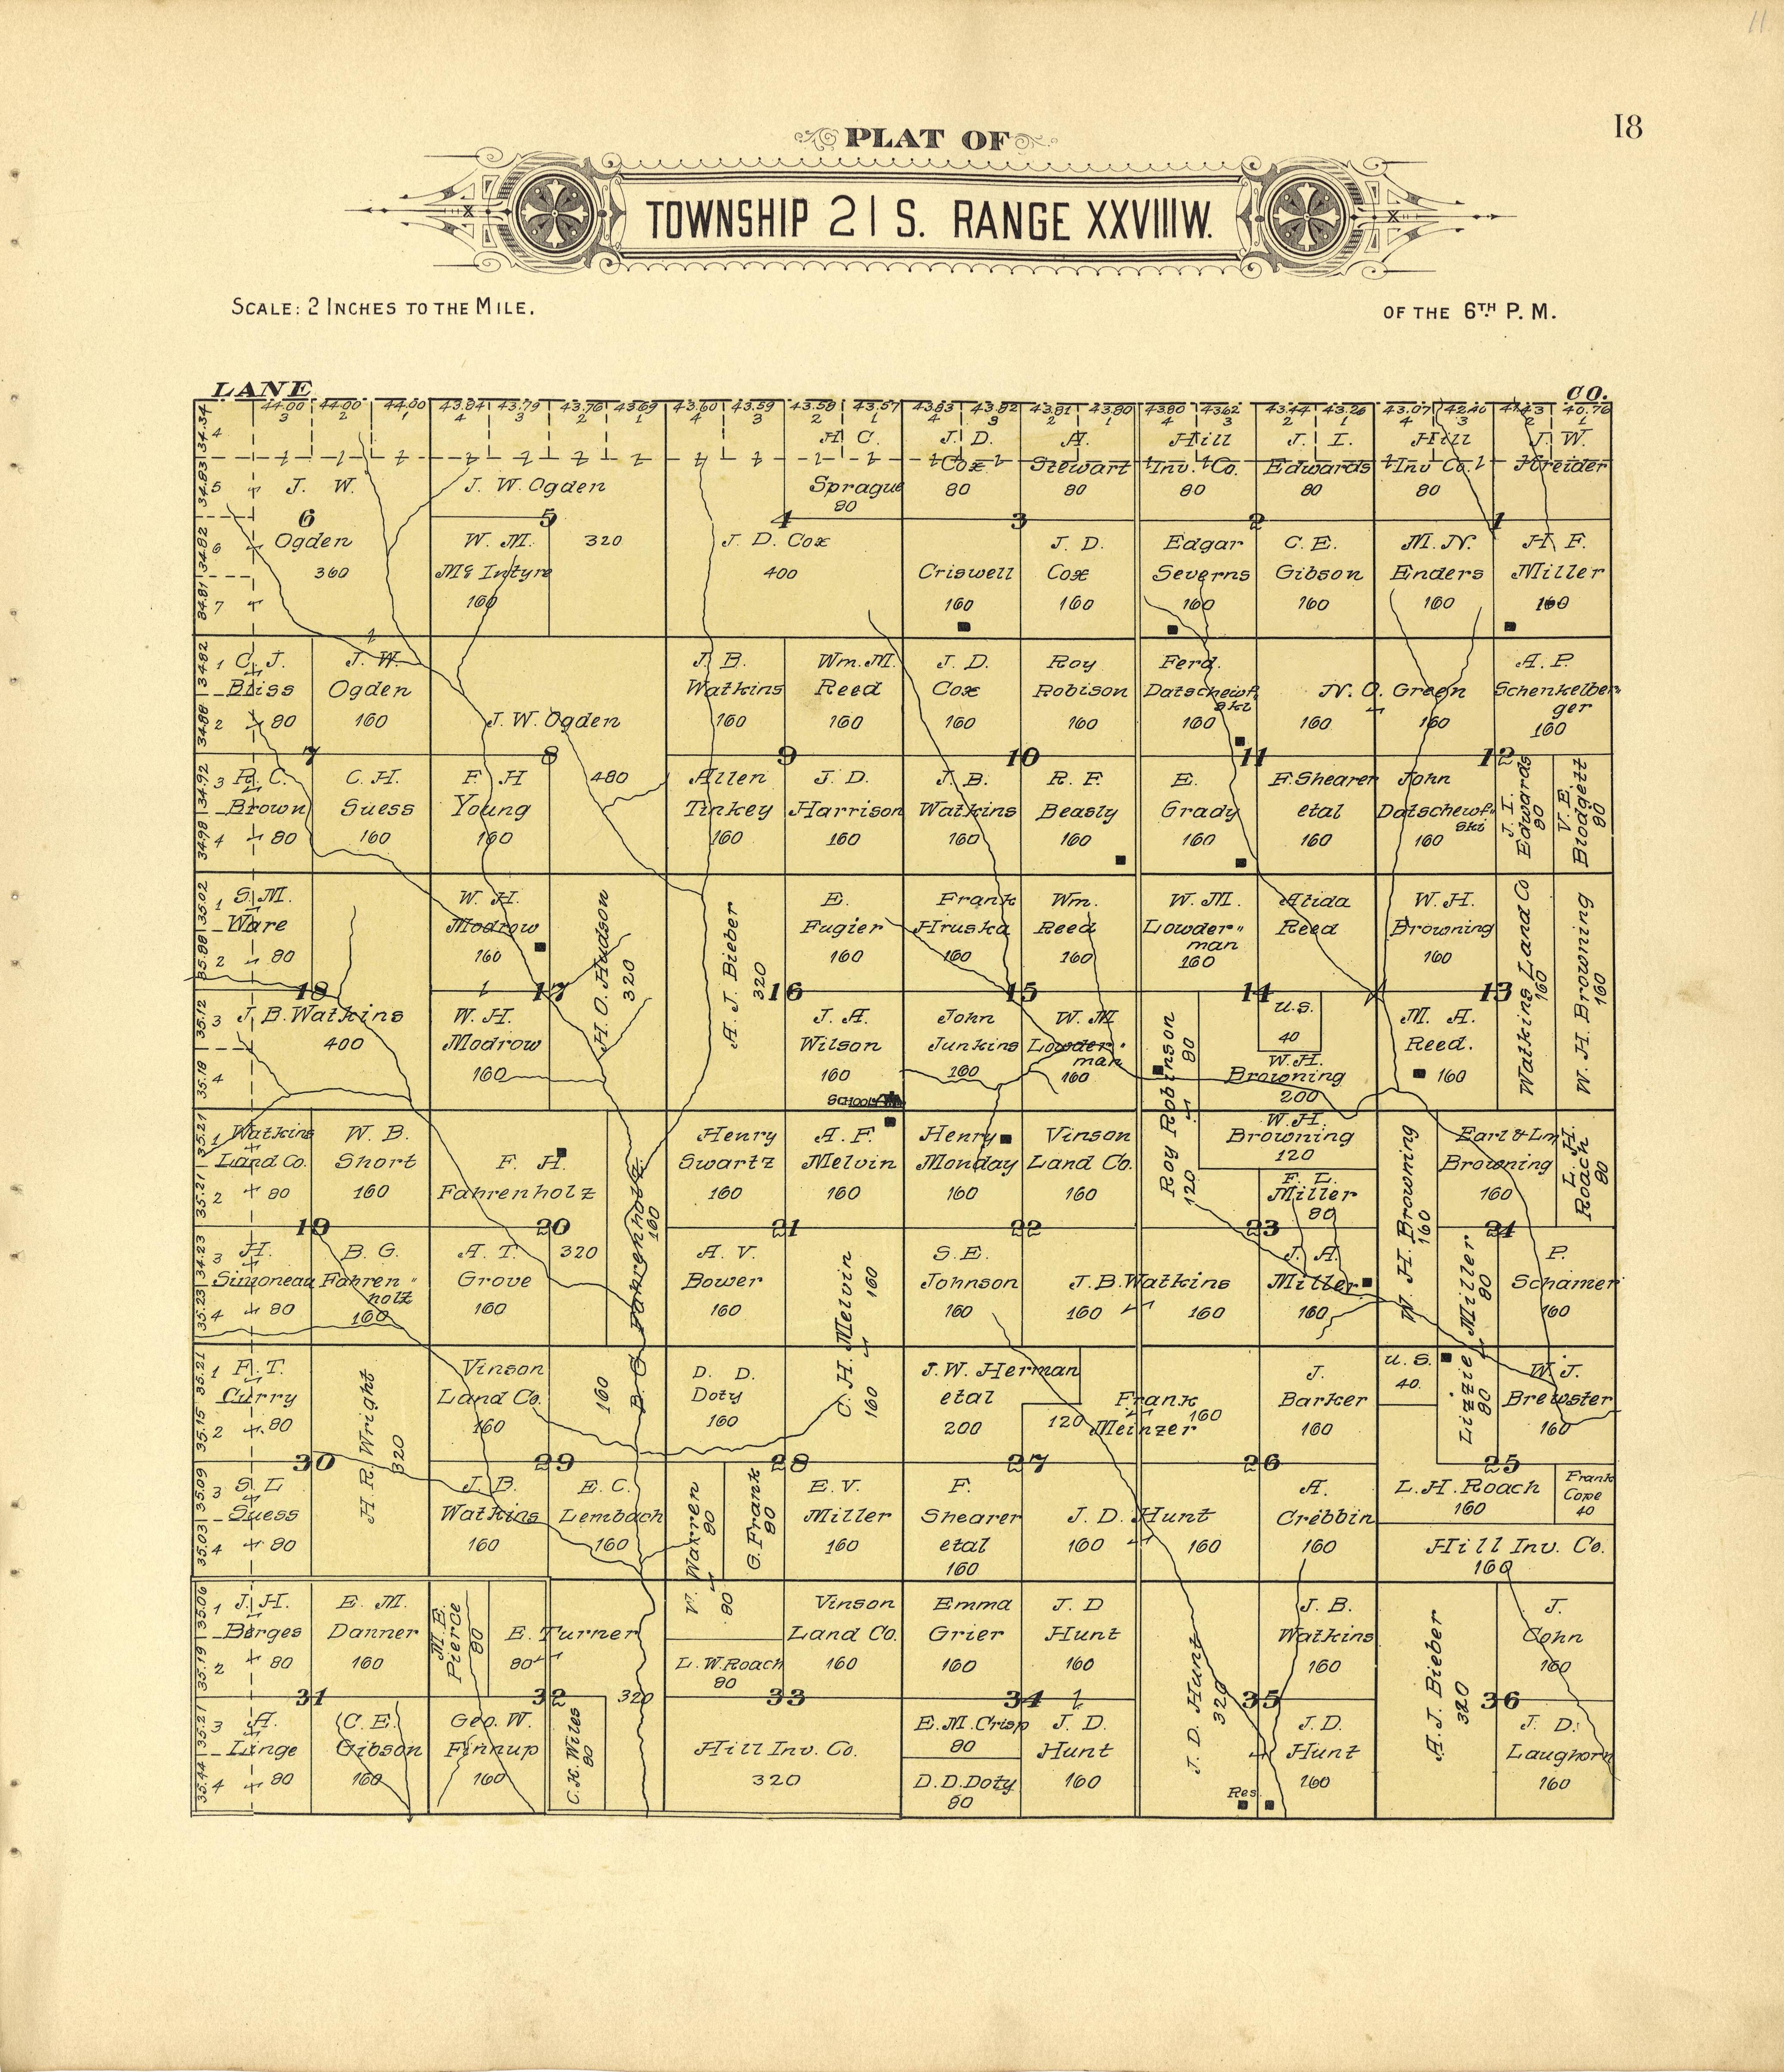 11
18
PLAT OF
TOWNSHIP 21 S. RANGE XXVIII W.
SCALE: 2 INCHES TO THE MILE.
OF THE 6TH P. M.
LANE
CO.
44.00 44.00 44.00 43.84 43.79 43.76 43.69 43.60 43.59 43.58 43.57 43.83 43.82 43.81 43.80 43.80 43.62 43.44 43.26 43.07 42.40 40.76
3 2 1 4 3 2 1 4 3 2 1 4 3 2 1 4 3 2 1 4 3 2 1
34.34 4
34.83 5
34.82 6
34.81 7
J. W.
Ogden
360
6
J. W. Ogden
320
5
W. M.
Mc Intyre
160
H. C.
Sprague
80
4
J. D. Cox
400
J. D.
Cox
80
A.
Stewart
80
3
Criswell
160
J. D.
Cox
160
Hill
Inv. Co.
80
J. I.
Edwards
80
2
Edgar
Severns
160
C. E.
Gibson
160
Hill
Inv Co.
80
J. W.
Kreider
1
M. N.
Enders
160
H. F.
Miller
160
34.82 1
34.88 2
34.92 3
34.98 4
C. J.
Bliss
80
J. W.
Ogden
160
7
R. C.
Brown
80
C. H.
Suess
160
J. W. Ogden
480
8
F H
Young
160
J. B.
Watkins
160
Wm. M.
Reed
160
9
Allen
Tinkey
160
J. D.
Harrison
160
J. D.
Cox
160
Roy
Robison
160
10
J. B.
Watkins
160
R. F.
Beasly
160
Ferd.
Datschewf-
ski
160
11
E.
Grady
160
F. Shearer
etal
160
N. O. Green
160
160
A. P.
Schenkelber-
ger
160
12
John
Datschewf-
ski
160
J. I. Edwards
80
V. E. Blodgett
80
35.02 1
35.88 2
35.12 3
35.18 4
S. M.
Ware
80
18
J. B. Watkins
400
W. H.
Modrow
160
17
W. H.
Modrow
160
H. O. Hudson
320
A. J. Bieber
320
16
E.
Fugier
160
J. A.
Wilson
160
SCHOOL
Frank
Hruska
160
Wm.
Reed
160
15
John
Junkins
160
W. M
Lowder-
man
160
W. M.
Lowder-
man
160
Alida
Reed
160
14
Roy Robinson
80
120
U.S.
40
W. H.
Browning
200
W. H.
Browning
160
13
M. A.
Reed.
160
Watkins Land Co
160
W. H. Browning
160
35.21 1
35.21 2
34.23 3
35.23 4
Watkins
Land Co.
80
W. B.
Short
160
19
H.
Simoneau
80
B. G.
Fahren-
holz
160
F. H.
Fahrenholz
320
20
A. T.
Grove
160
B. G. Fahrenholz
160
160
Henry
Swartz
160
A. F.
Melvin
160
21
A. V.
Bower
160
C. H. Melvin
160
160
Henry
Monday
160
Vinson
Land Co.
160
22
S. E.
Johnson
160
J. B. Watkins
160
160
W. H.
Browning
120
F. L.
Miller
80
23
J. A.
Miller
160
W. H. Browning
160
Earl & Lm.
Browning
160
L. H. Roach
80
24
Lizzie Miller
80
80
P.
Schamer
160
35.21 1
35.15 2
35.09 3
35.03 4
F. T.
Curry
80
H. R. Wright
320
30
S. L
Suess
80
Vinson
Land Co.
160
29
J. B.
Watkins
160
E. C.
Lembach
160
D. D.
Doty
160
28
V. Warren
80
80
G. Frank
80
E. V.
Miller
160
J. W. Herman
etal
200
27
F.
Shearer
etal
160
Frank
Meinzer
120
160
J. D. Hunt
160
160
J.
Barker
160
26
A.
Crebbin
160
U. S.
40.
W. J.
Brewster
160
25
L. H. Roach
160
Frank
Cope
40
Hill Inv. Co.
160
35.06 1
35.19 2
35.21 3
35.44 4
J. H.
Barges
80
E. M.
Danner
160
31
A.
Linge
80
C. E.
Gibson
160
M. E. Pierce
80
E. Turner
80
320
32
Geo. W.
Finnup
160
C. K. Wiles
80
L. W. Roach
80
Vinson
Land Co.
160
33
Hill Inv. Co.
320
Emma
Grier
160
J. D
Hunt
160
34
E. M. Crisp
80
D. D. Doty
80
J. D.
Hunt
160
J. D. Hunt
320
J. B.
Watkins
160
35
J. D.
Hunt
160
Res.
A. J. Bieber
320
J.
Cohn
160
36
J. D.
Laughorn
160